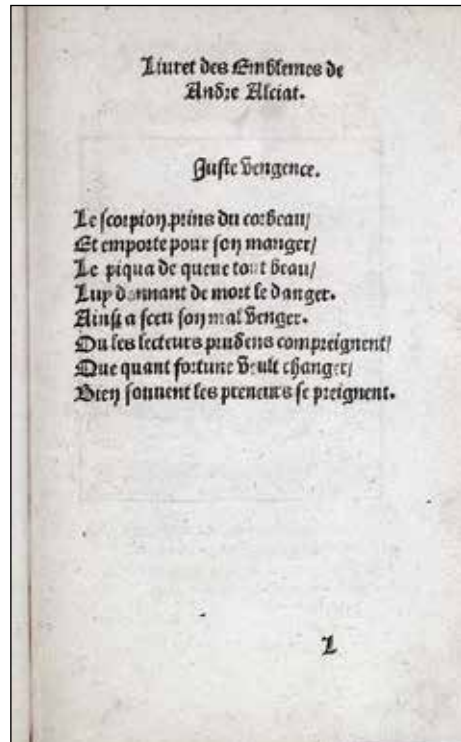 Liuret des Emblemes de
Andre Alciat.
Iuste vengence.
Le scorpion prins du corbeau/
Et emporte pour son manger/
Le piqua de queue tout beau/
Luy donnant de mort le danger.
Ainsi a sceu son mal venger.
Ou les lecteurs prudens compreignent/
Que quant fortune veult changer/
Bien souuent les preneurs se preignent.
L